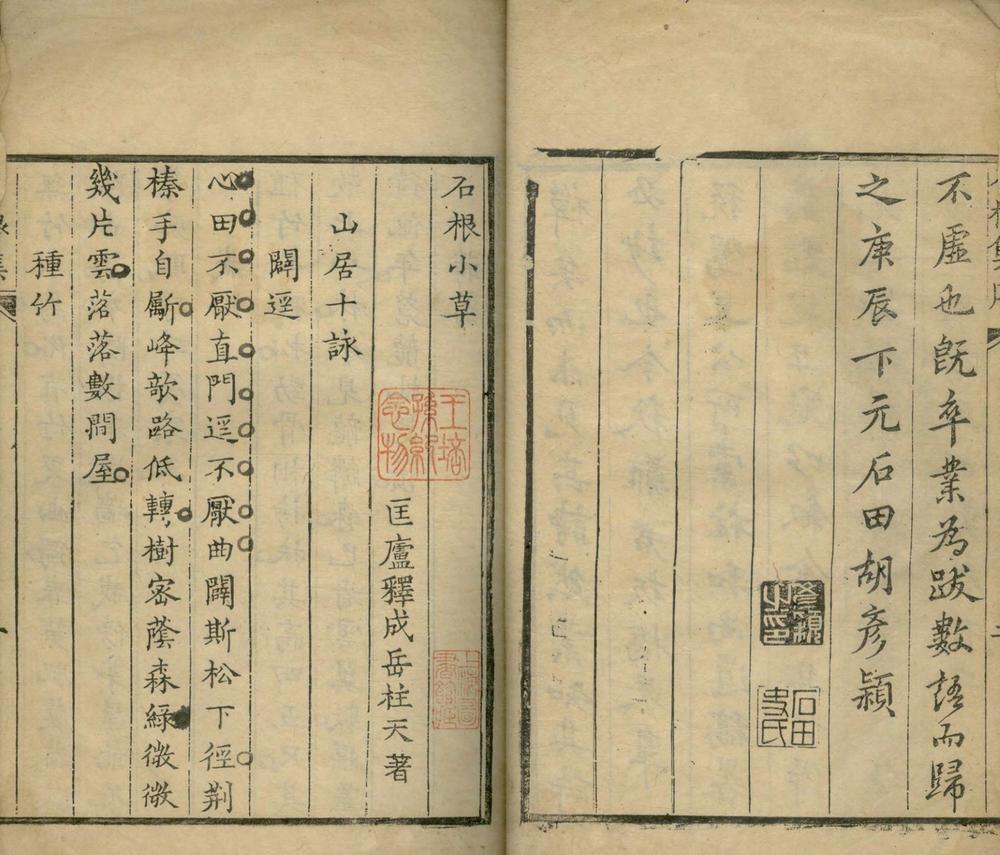 不虛也既卒業為跋數語而歸
之庚辰下元石田胡彥穎
彥穎之印
石田史氏
石根小草
王培孫紀念物
匡廬釋成岳柱天著
山居十詠
闢逕
心田不厭直門逕不厭曲闢斯松下徑荆
榛手自劚峰欹路低轉樹密蔭森綠微微
幾片雲落落數間屋
種竹